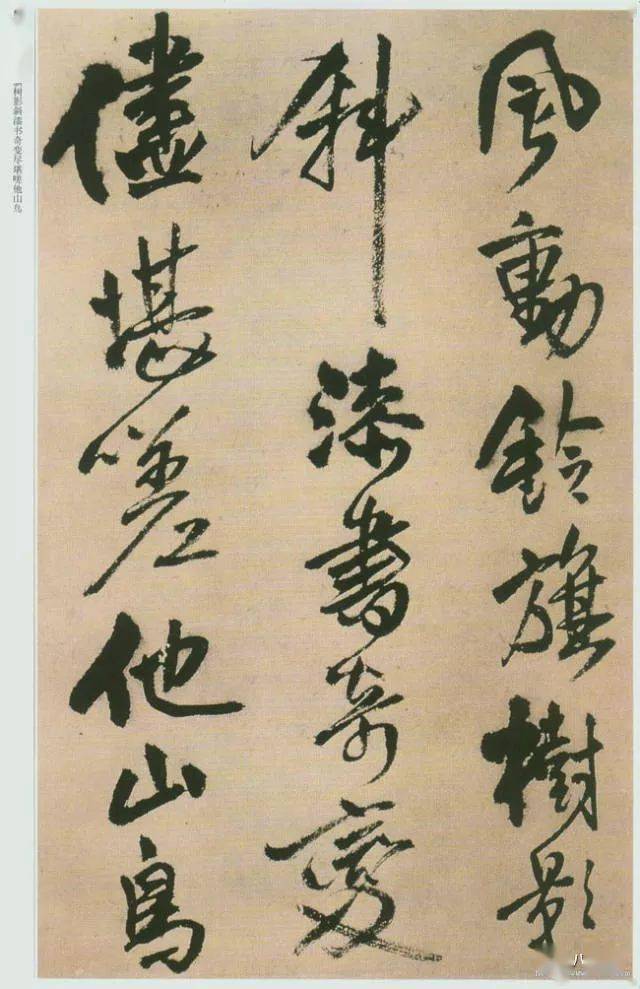 風動鈴旗樹影
斜漆書奇變
儘堪嗟他山鳥
树影斜漆书奇变尽堪嗟他山鸟
八